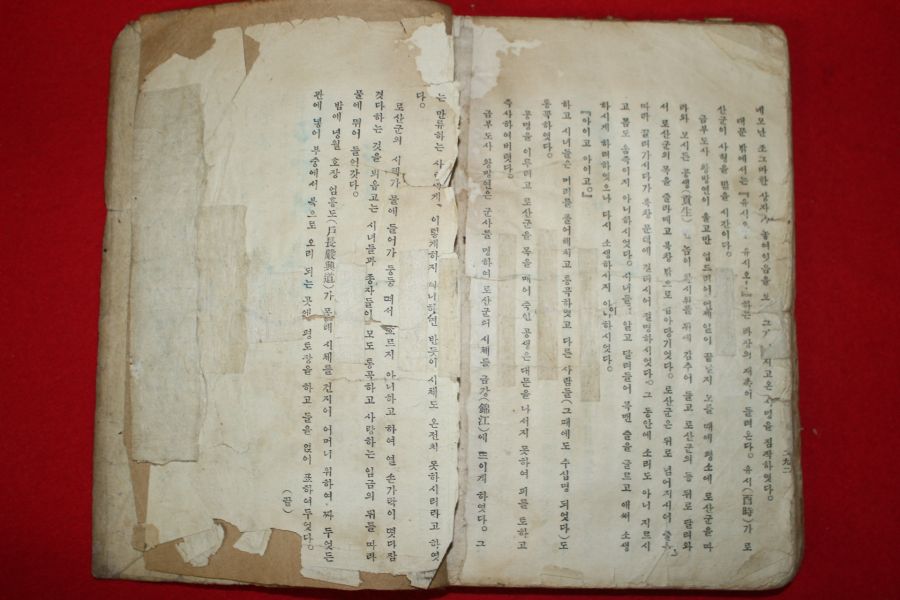 네모난 조그마한 상자가 놓여잇슴을 보 지고온 사명을 짐작하엿다.
대문 밖에서는 『유시오 유시오!』하는 라장의 재촉이 들려온다. 유시(酉時)가 로
산군이 사약을 벌을 시간이다.
금부도사 왕방연이 울고만 업드리어 언제 일이 끝날지 모를 때에 평소에 로산군을 따
라와 모시든 공생(貢生) 놈이 활시위를 뒤에 감추어 들고 로산군의 등 뒤로 달려와
서 로산군의 목을 졸라매고 북창 밖으로 잡아당기엇다. 로산군은 뒤로 넘어지시어 줄
따라 끌려가시다가 북창 문턱에 걸리시어 절명하시엇다. 그 동안에 소리도 아니 지르시
고 몸도 움즉이지 아니하시엇다. 시녀들이 알고 달려들어 목맨 줄을 글르고 애써 소생
하시게 하려하엿으나 다시 소생하시지 아니하시엇다.
『아이고 아이고。』
하고 시녀들은 머리를 풀어헤치고 통곡하엿고 다른 사람들(그때에도 수십명 되엇다)도
통곡하엿다。
공명을 이루려고 로산군을 목을 매어 죽인 공생은 대문을 나서지 못하여 피를 토하고
즉사하여버렷다。
금부도사 왕방연은 군사를 명하여 로산군의 시체를 금강(錦江)에 뜨이게 하엿다。그
는 만류하는 사람에게、이렇게하지 아니하면 반듯이 시체도 온전치 못하시리라고 하엿
다。
로산군의 시체가 물에 들어가 둥둥 떠서 흐르지 아니하고 하여 열 손가락이 몃더잠
겻다하는 것을 뵈옵고는 시녀들과 종자들이 모도 통곡하고 사랑하는 임금의 뒤를 따라
물에 뛰어 들어갓다。
밤에 녕월 호장 엄흥도(戶長嚴興道)가 몰래 시체를 건지어 어머니 위하여 짜 두엇든
관에 넣어 부중에서 북으로 오리 되는 곳에 평토장을 하고 돌을 얹어 표하여두엇다。
(끝)